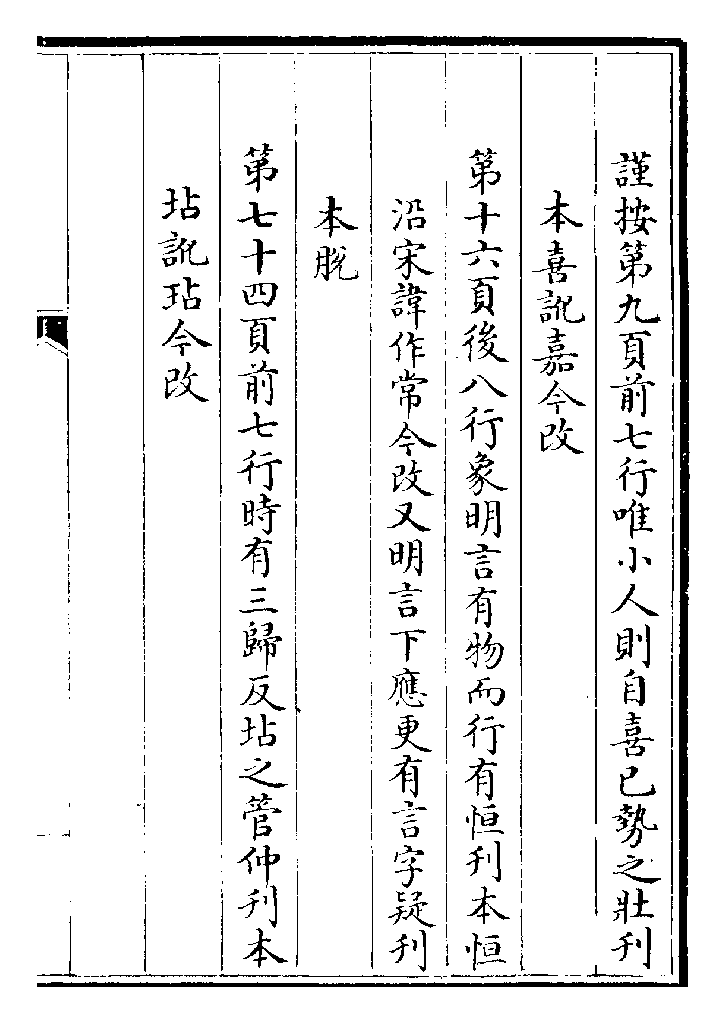 謹按第九頁前七行唯小人則自喜已勢之壯刊
本喜訛嘉今改
第十六頁後八行象明言有物而行有恒刊本恒
沿宋諱作常今改又明言下應更有言字疑刊
本脫
第七十四頁前七行時有三歸反坫之管仲刊本
坫訛玷今改